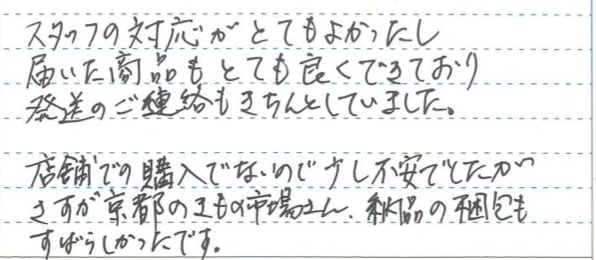 スタッフの対応がとてもよかったし
届いた商品もとても良くできており
発送のご連絡もきちんとしていました。
店舗での購入でないので少し不安でしたが
さすが京都のきもの市場さん、納品の梱包も
すばらしかったです。